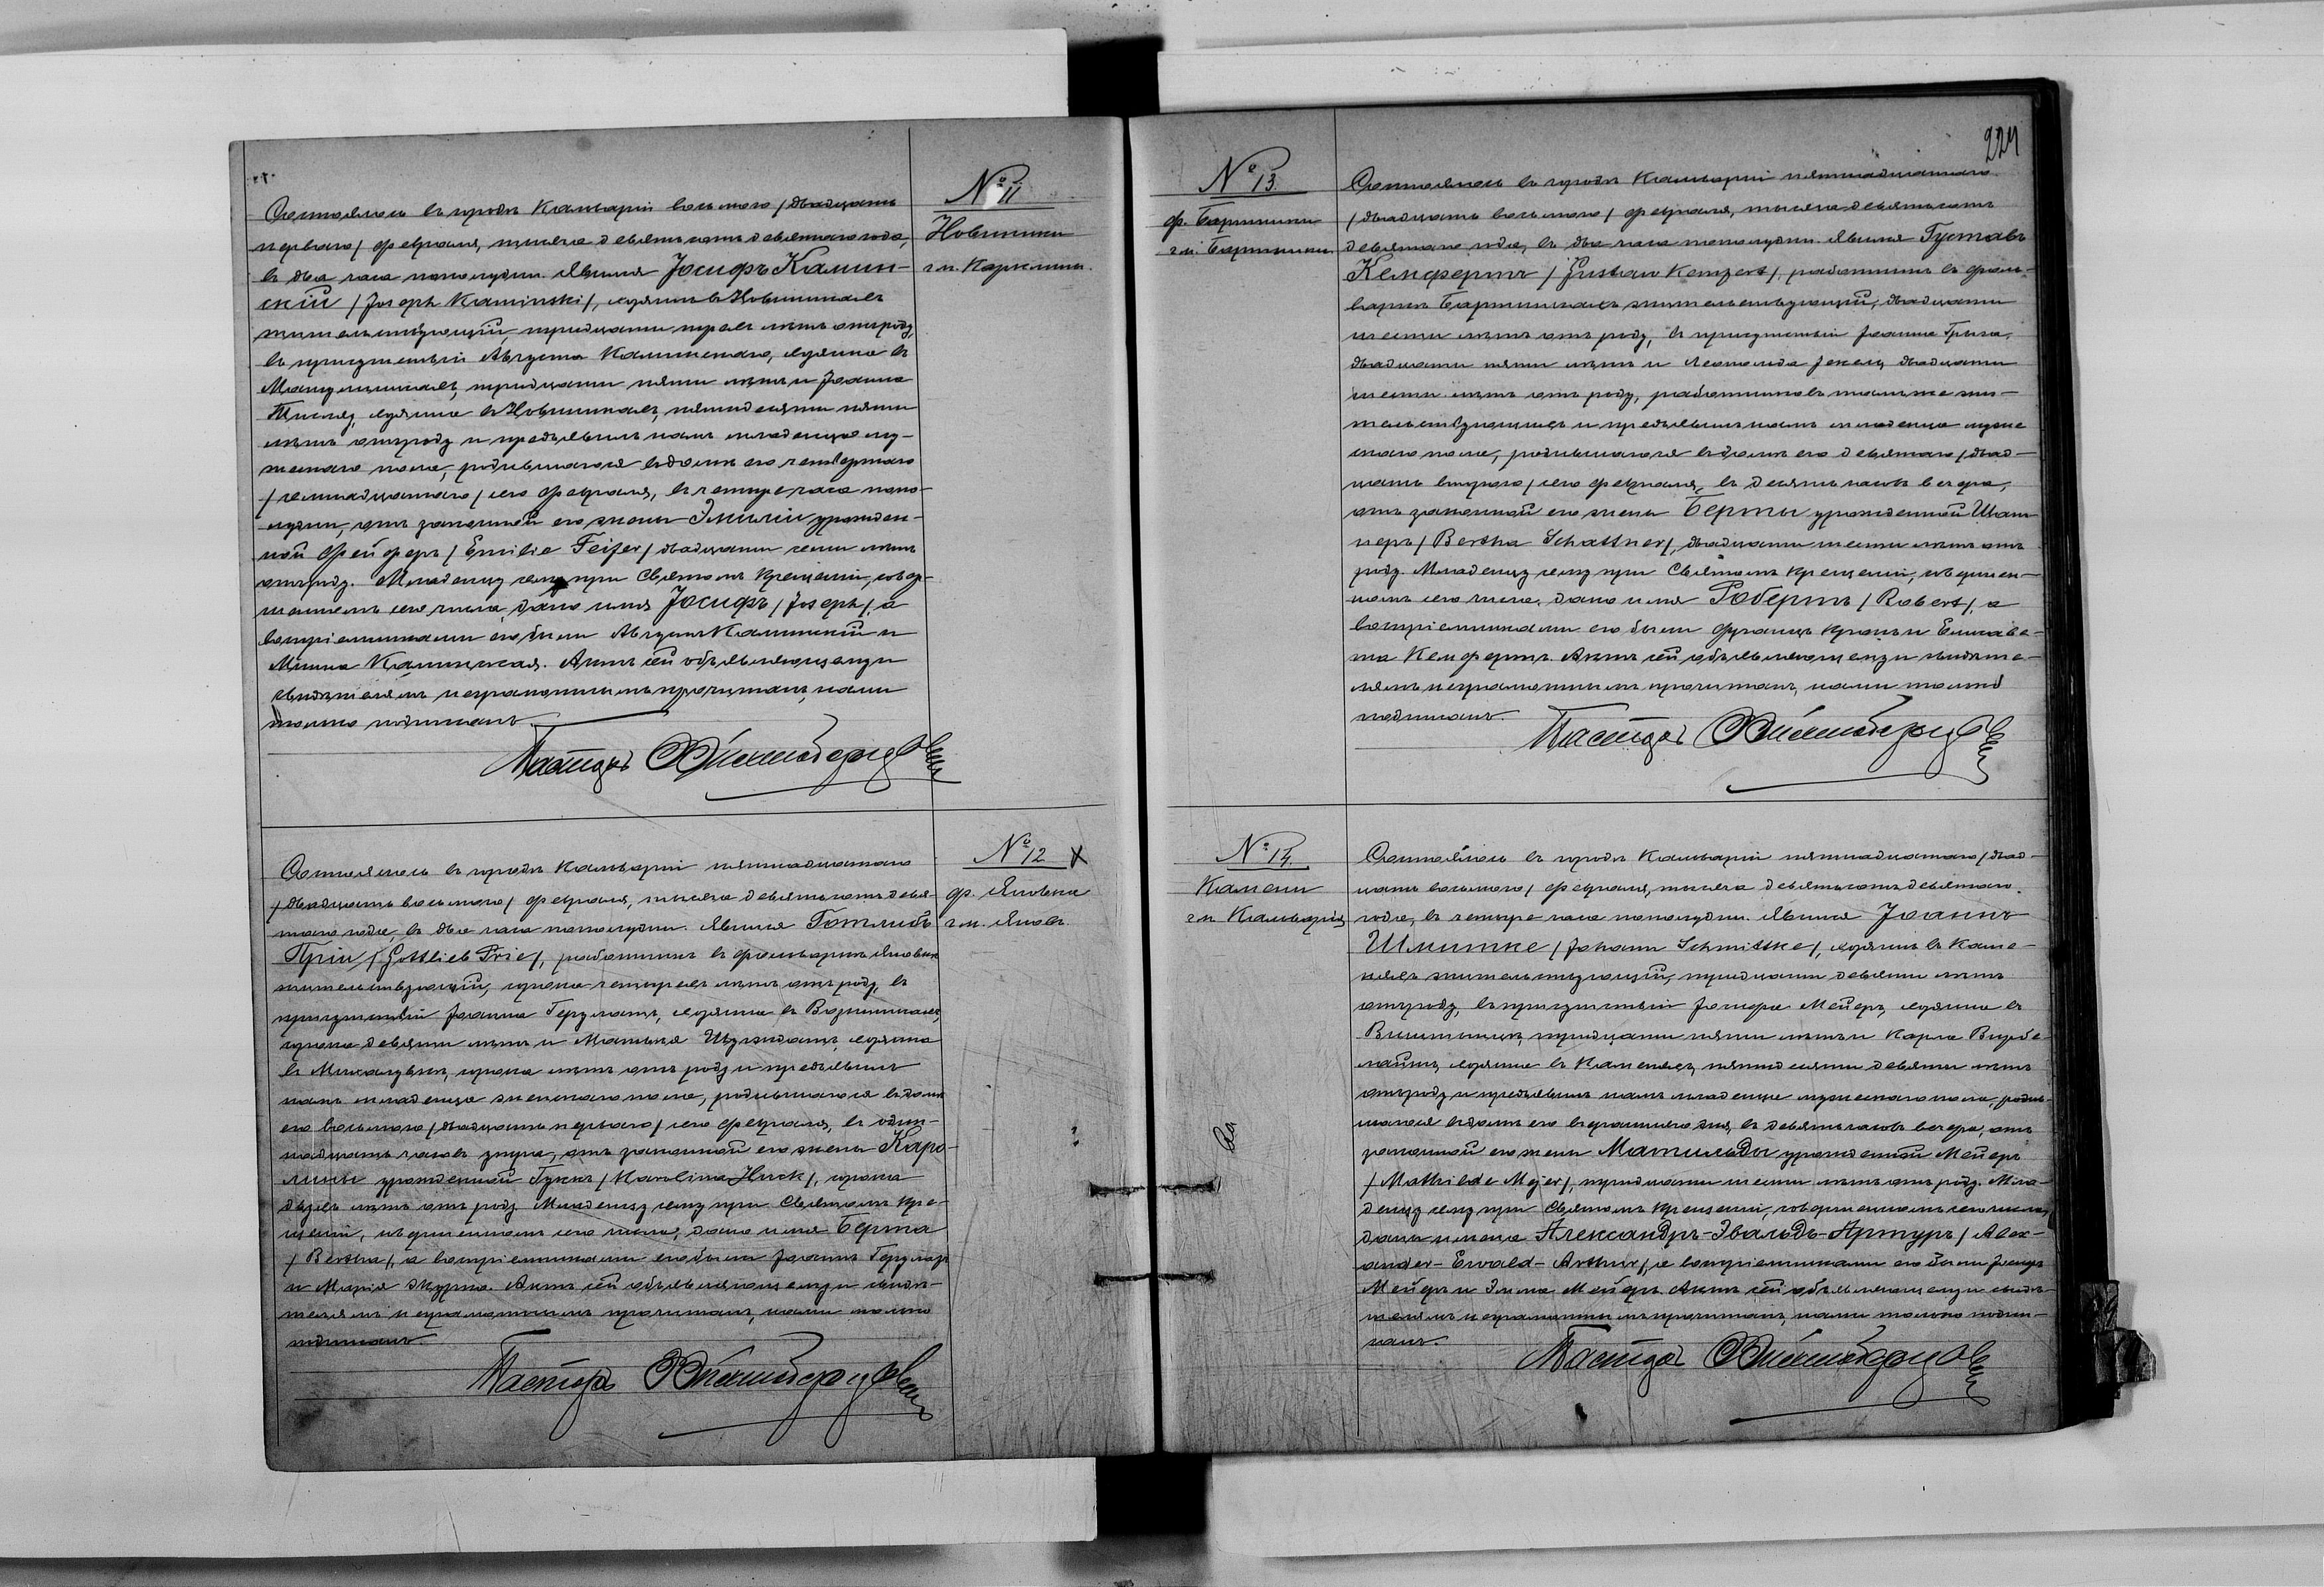 № 11
Новинники
гм. Карклины.
Состоялось въ городѣ Кальваріи восьмого /двадцать
перваго/ февраля, тысяча девятьсотъ девятаго года,
въ два часа пополудни. Явился Іосифъ Камин-
скій /Joseph Kaminski/, въ
жительствующій, тридцати трехъ лѣтъ отъ роду,
въ присутствіи Августа Каминскаго, въ
тридцати пяти лѣтъ и Іоанна
въ пятидесяти пяти
лѣтъ отъ роду и предъявилъ намъ младенца му-
жескаго пола, родившагося въ домѣ его четвертаго
/семнадцатаго/ сего февраля, въ четыре часа попо-
лудни, отъ законной его жены Эмиліи урожден-
ной Фейферъ /Emilie Feifer/ двадцати семи лѣтъ
отъ роду. Младенцу сему при Святомъ Крещеніи, совер-
шенномъ сего числа, дано имя Іосифъ /Joseph/, а
воспріемниками его были Августъ Каминскій и
Минна Каминская. Актъ сей объявляющему и
свидѣтелямъ неграмотнымъ прочитанъ, нами
только подписанъ.
Пасторъ
№ 12 X
ф. Яновка
гм. Яновъ.
Состоялось въ городѣ Кальваріи пятнадцатаго
/двадцать восьмого/ февраля, тысяча девятьсотъ девя-
таго года, въ два часа пополудни. Явился Готлибъ
Прій /Gottlieb Prie/, работникъ въ фольваркѣ Яновкѣ
жительствующій, сорока четырехъ лѣтъ отъ роду, въ
присутствіи Іоанна въ
сорока девяти лѣтъ и
въ сорока лѣтъ отъ роду и предъявилъ
намъ младенца женскаго пола, родившагося въ домѣ
его восьмого /двадцать перваго/ сего февраля, въ один-
надцать часовъ утра, отъ законной его жены Каро-
лины урожденной Гукъ /Karolina Huck/, сорока
двухъ лѣтъ отъ роду. Младенцу сему при Святомъ Кре-
щеніи, совершенномъ сего числа, дано имя Берта
/Bertha/, а воспріемниками его были Іоаннъ
и Марія Актъ сей объявляющему и свидѣ-
телямъ неграмотнымъ прочитанъ, нами только
подписанъ.
Пасторъ
224
№ 13.
ф. Бартники
гм. Бартники
Состоялось въ городѣ Кальваріи пятнадцатаго
/двадцать восьмого/ февраля, тысяча девятьсотъ
девятаго года, въ два часа пополудни. Явился Густавъ
Кемфертъ /Gustav Kemfert/, работникъ въ фоль-
варкѣ Бартникахъ жительствующій, двадцати
шести лѣтъ отъ роду, въ присутствіи Іоанна
двадцати пяти лѣтъ и Леопольда двадцати
шести лѣтъ отъ роду, работниковъ тамъ же жи-
тельствующихъ и предъявилъ намъ младенца муже
скаго пола, родившагося въ домѣ его девятаго /двад-
цать второго/ сего февраля, въ десять часовъ вечера,
отъ законной его жены Берты урожденной Шат-
неръ /Bertha Schattner/, двадцати шести лѣтъ отъ
роду. Младенцу сему при Святомъ Крещеніи, совершен-
номъ сего числа, дано имя Робертъ /Robert/, а
воспріемниками его были Францъ и Елизаве-
та Кемфертъ. Актъ сей объявляющему и свидѣте-
лямъ неграмотнымъ прочитанъ, нами только
подписанъ.
Пасторъ
№ 14.
Камени
гм. Кальварія
Состоялось въ городѣ Кальваріи пятнадцатаго /двад-
цать восьмого/ февраля, тысяча девятьсотъ девятаго
года, въ четыре часа пополудни. Явился Іоаннъ
Шмитке /Johann Schmittke/, въ Каме-
няхъ жительствующій, тридцати девяти лѣтъ
отъ роду, въ присутствіи Іосифа Мейеръ, въ
тридцати пяти лѣтъ и Карла
въ Каменяхъ, пятидесяти девяти лѣтъ
отъ роду и предъявилъ намъ младенца мужескаго пола, родив-
шагося въ домѣ его въ девять часовъ вечера, отъ
законной его жены Матильды урожденной Мейеръ
/Mathilde Mejer/, тридцати шести лѣтъ отъ роду. Мла-
денцу сему при Святомъ Крещеніи, совершенномъ сего числа,
даны имена Александръ-Эвальдъ-Артуръ /Alex-
ander-Ewald-Arthur/, а воспріемниками его были Іосифъ
Мейеръ и Эмма Мейеръ. Актъ сей объявляющему и свидѣ-
телямъ неграмотнымъ прочитанъ, нами только подпи-
санъ.
Пасторъ